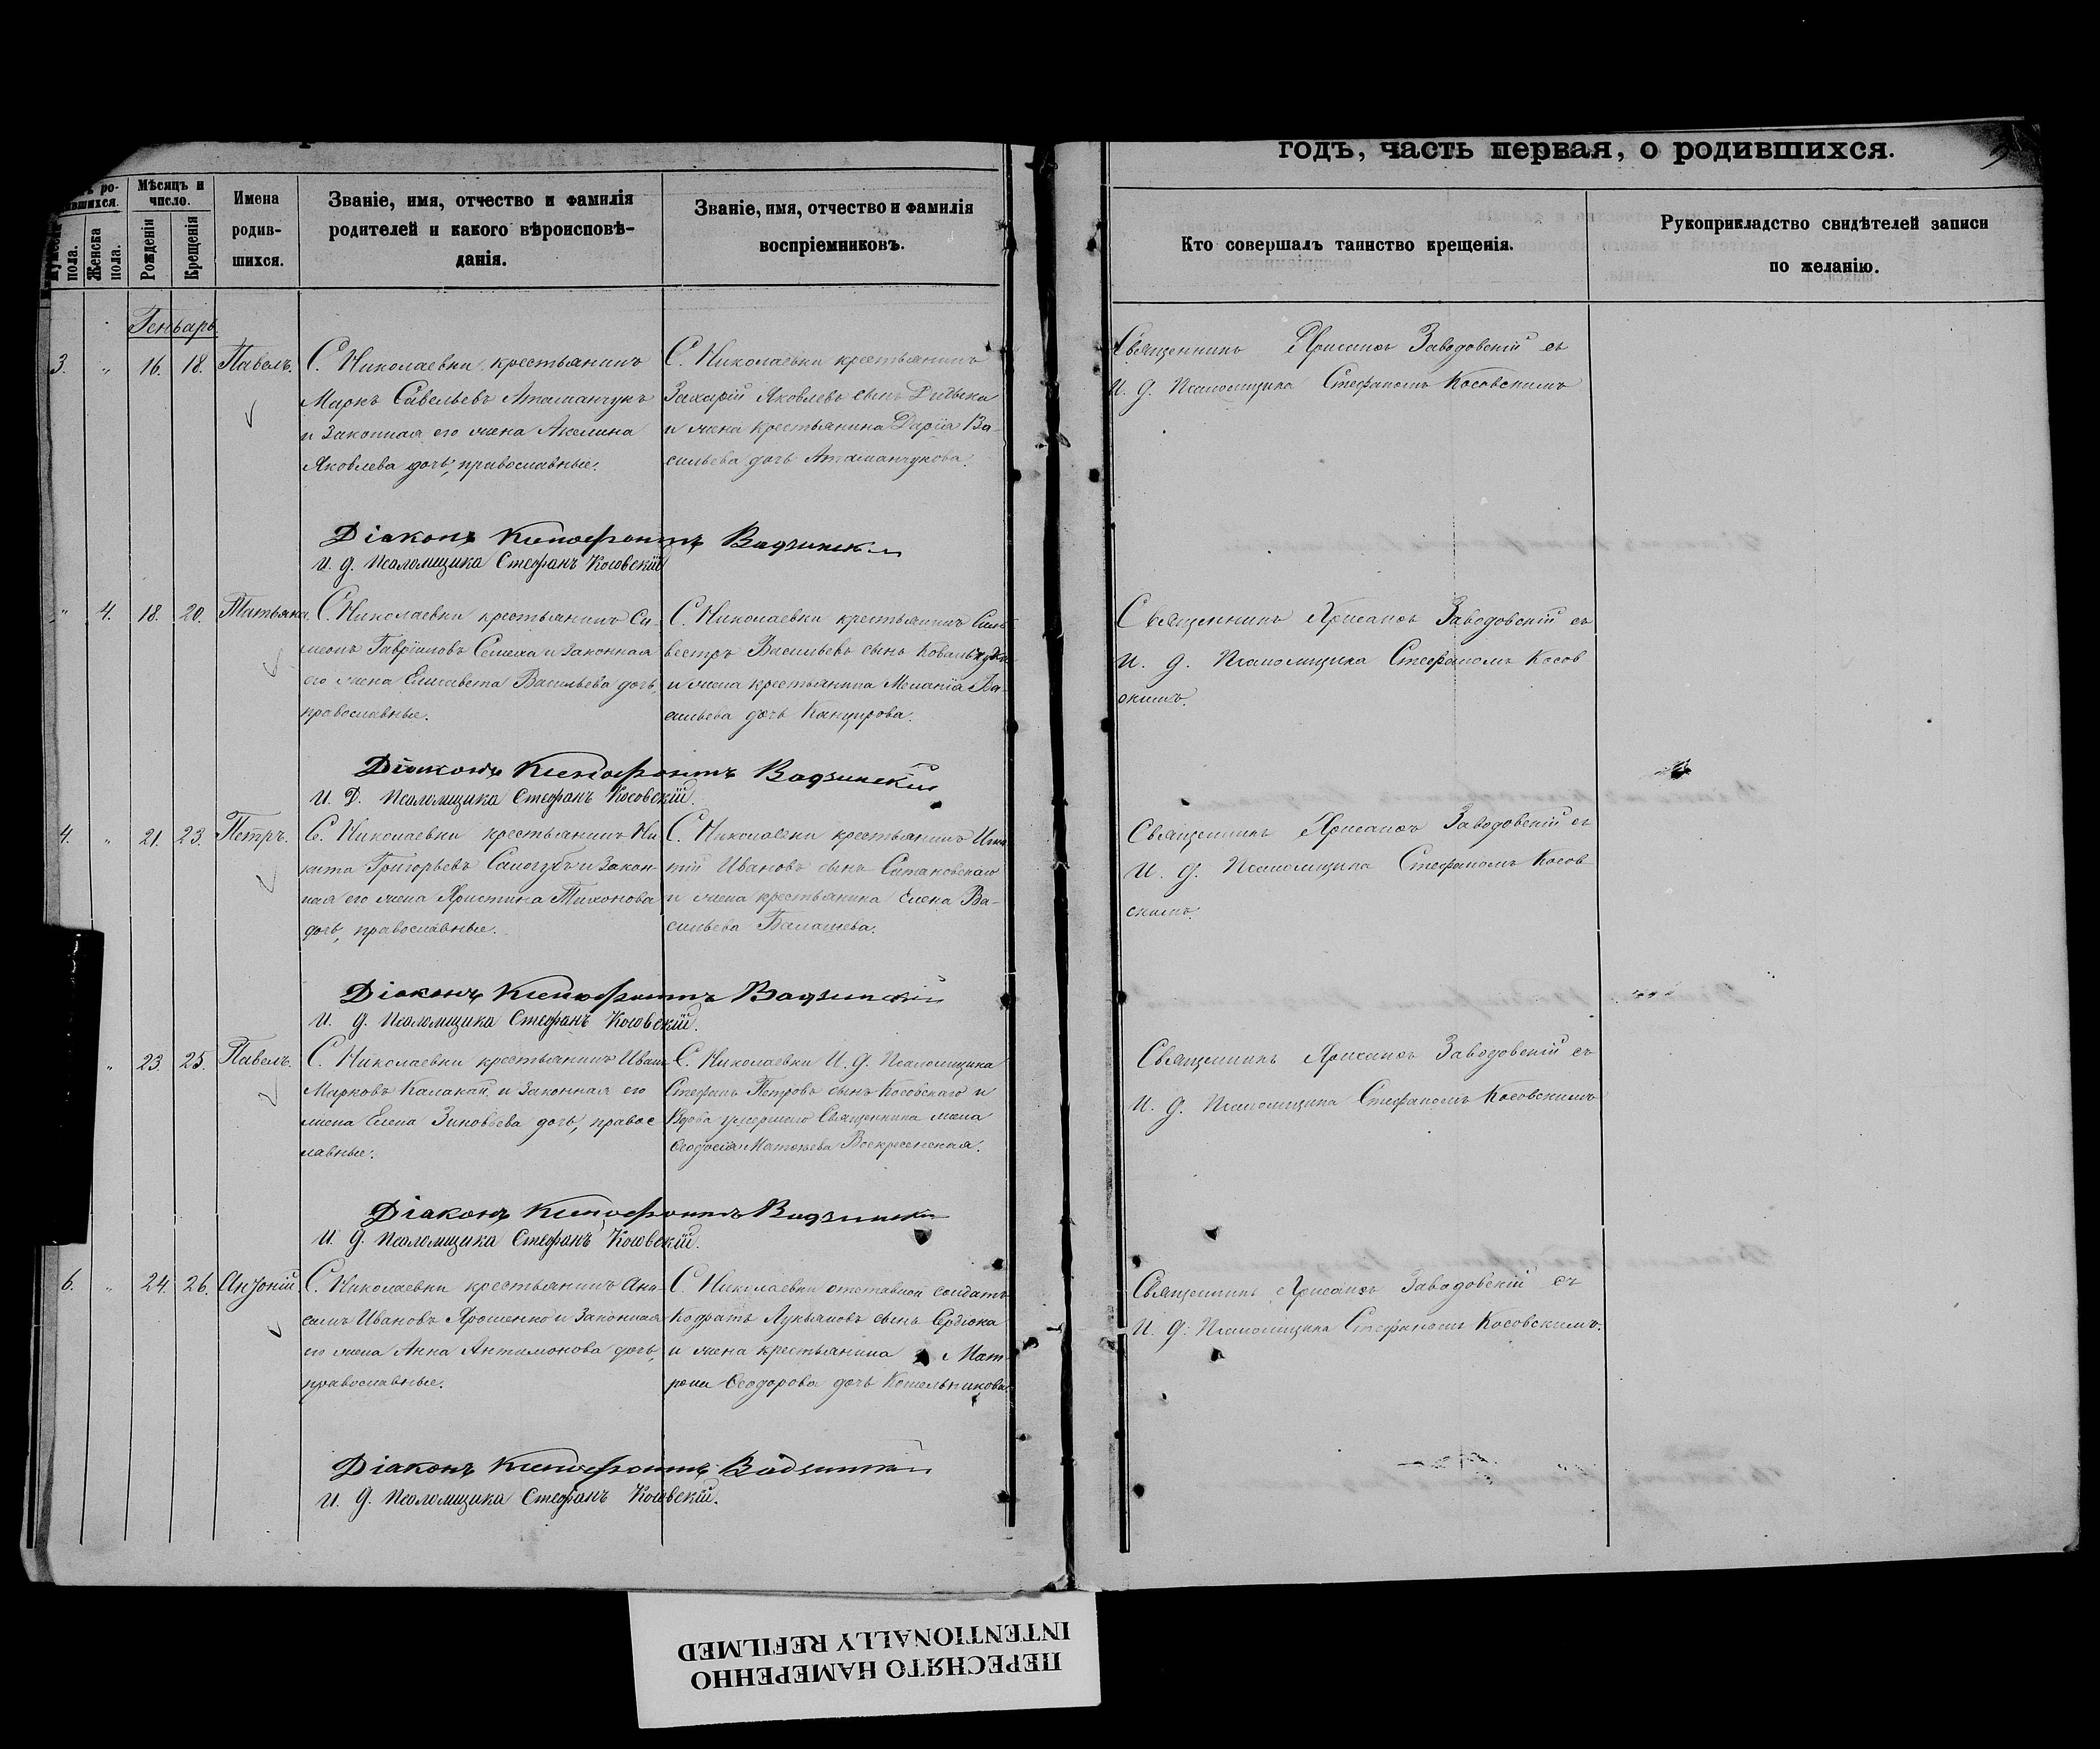 годъ, часть первая, о родившихся.
Мѣсяцъ и число.
Рожденія
Крещенія
Женска пола.
пола.
Имена родив-
шихся.
Званіе, имя, отчество и фамилія
родителей и какого вѣроисповѣ-
данія.
Званіе, имя, отчество и фамилія
воспріемниковъ.
Кто совершалъ таинство крещенія.
Рукоприкладство свидѣтелей записи
по желанію.
Генварь.
3. " 16. 18. Павелъ.
С. Николаевки крестьянинъ
Маркъ Савельевъ Атаманчукъ
и законная его жена Акелина
Яковлева дочь, православные.
С. Николаевки крестьянинъ
Захарій Яковлевъ сынъ Дидыка
и жена крестьянина Дарія Ва-
сильева дочь Атаманчукова.
Священникъ Хрисанѳъ Заводовскій съ
И. д. Псаломщика Стефаномъ Косовскимъ
Діаконъ Ксенофонтъ
И. д. Псаломщика Стефанъ Косовскій
" 4. 18. 20. Татьяна.
С. Николаевки крестьянинъ Си-
меонъ Гавріиловъ и законная
его жена Елисавета Васильева дочь,
православные.
С. Николаевки крестьянинъ Силь
вестръ Васильевъ сынъ
и жена крестьянина Меланія Ва-
сильева дочь
Священникъ Хрисанѳъ Заводовскій съ
И. д. Псаломщика Стефаномъ Косов
скимъ.
Діаконъ Ксенофонтъ
И. Д. Псаломщика Стефанъ Косовскій.
4. " 21. 23. Петръ.
С. Николаевки крестьянинъ Ни-
кита Григорьевъ Самогубъ и закон-
ная его жена Христина Тихонова
дочь, православные.
С. Николаевки крестьянинъ Игна
тій Ивановъ сынъ Сатановскаго
и жена крестьянина Елена Ва-
сильева Балашева.
Священникъ Хрисанѳъ Заводовскій съ
И. д. Псаломщика Стефаномъ Косов
скимъ.
Діаконъ Ксенофонтъ
И. д. Псаломщика Стефанъ Косовскій.
" 23. 25. Павелъ.
С. Николаевки крестьянинъ Иванъ
Марковъ Калакай и законная его
жена Елена Зиновьева дочь, правос
лавные.
С. Николаевки И. д. Псаломщика
Стефанъ Петровъ сынъ Косовскаго и
Вдова умершего Священника жена
Ѳеодосія Матѳеева Воскресенская.
Священникъ Хрисанѳъ Заводовскій съ
И. д. Псаломщика Стефаномъ Косовскимъ
Діаконъ Ксенофонтъ
И. д. Псаломщика Стефанъ Косовскій.
6. " 24. 26. Антоній.
С. Николаевки крестьянинъ Ани-
симъ Ивановъ Ярошенко и законная
его жена Анна Антимонова дочь,
православные.
С. Николаевки отставной солдатъ
Кодратъ Лукьяновъ сынъ Сердюка
и жена крестьянина Мат
рона Ѳеодорова дочь Котельникова
Священникъ Хрисанѳъ Заводовскій съ
И. д. Псаломщика Стефаномъ Косовскимъ.
Діаконъ Ксенофонтъ
И. д. Псаломщика Стефанъ Косовскій.
ПЕРЕСНЯТО НАМЕРЕННО
INTENTIONALLY REFILMED